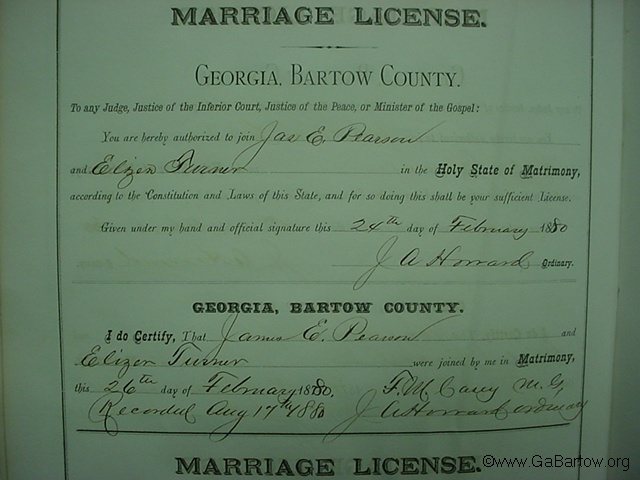 MARRIAGE LICENSE.
GEORGIA, BARTOW COUNTY.
To any Judge, Justice of the Inferior Court, Justice of the Peace, or Minister of the Gospel:
You are hereby authorized to join Jas E. Pearson
and Elizer Turner in the Holy State of Matrimony,
according to the Constitution and Laws of this State, and for so doing this shall be your sufficient License.
Given under my hand and official signature this 24th day of February 1880
J A Howard Ordinary.
GEORGIA, BARTOW COUNTY.
I do Certify, That James E. Pearson and
Elizer Turner were joined by me in Matrimony,
this 26th day of February 1880. F. M. Casey M. G,
Recorded Aug 17th 1880 J A Howard ordinary
MARRIAGE LICENSE.
©www.GaBartow.org